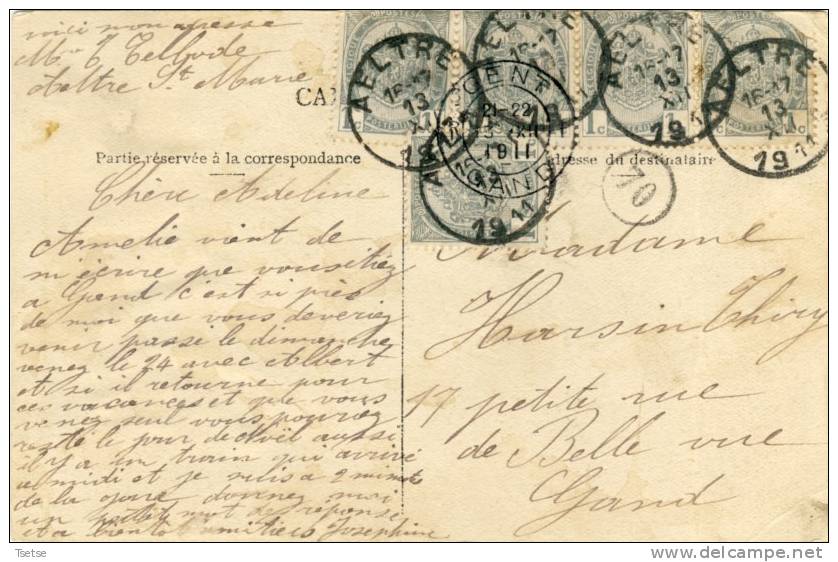 voici mon adresse
Mr T Tellyode
Aeltre Ste Marie
CA
AELTRE 16-17 13 XII 1911
AELTRE 16-17 13 XII 1911
AELTRE 16-17 13 XII 1911
GENT 21-22 13 XII 1911 GAND
Partie réservée à la correspondance
adresse du destinataire
70
Chère Adeline
Amelie vient de
m'écrire que vous étiez
a Gand c'est si près
de moi que vous deveriez
venir passé le dimanche
venez le 24 avec Albert
et si il retourne pour
ces vacances et que vous
venez seul vous pouvez
resté le jour de Noël aussi
il y a un train qui arrive
a midi et je suis a 2 minute
de la gare donnez moi
un petit mot de réponse
et a bientot amitiés Josephine
Madame
Harsin Thiry
17 petite rue
de Belle vue
Gand
Tsetse
www.delcampe.net